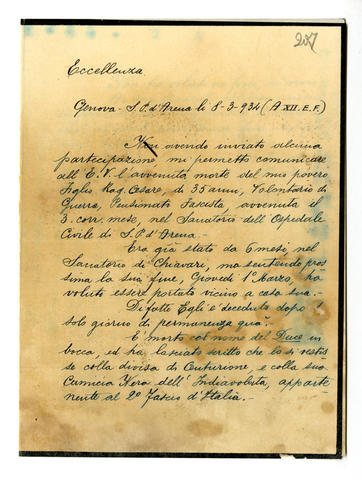 207
Eccellenza
Genova - S. P. d'Arena li 8-3-934 (A XII. E. F.)
Non avendo inviato alcuna
partecipazione mi permetto comunicare
all' E. V. l'avvenuta morte del mio povero
figlio Rag. Cesare, di 35 anni, Volontario di
Guerra, Pensionato Fascista, avvenuta il
3. corr. mese, nel Sanatorio dell'Ospedale
Civile di S. P. d'Arena.-
Era già stato da 6 mesi nel
Sanatorio di Chiavari, ma sentendo pros
sima la sua fine, Giovedì 1° Marzo, ha
voluto essere portato vicino a casa sua.-
Difatte Egli è deceduto dopo 1
solo giorno di permanenza quà.-
È morto col nome del Duce in
bocca, ed ha lasciato scritto che lo si vestis
se colla divisa di Centurione, e colla sua
Camicia Nera dell'Indiavolata, apparte
nente al 2° Fascio d'Italia.-